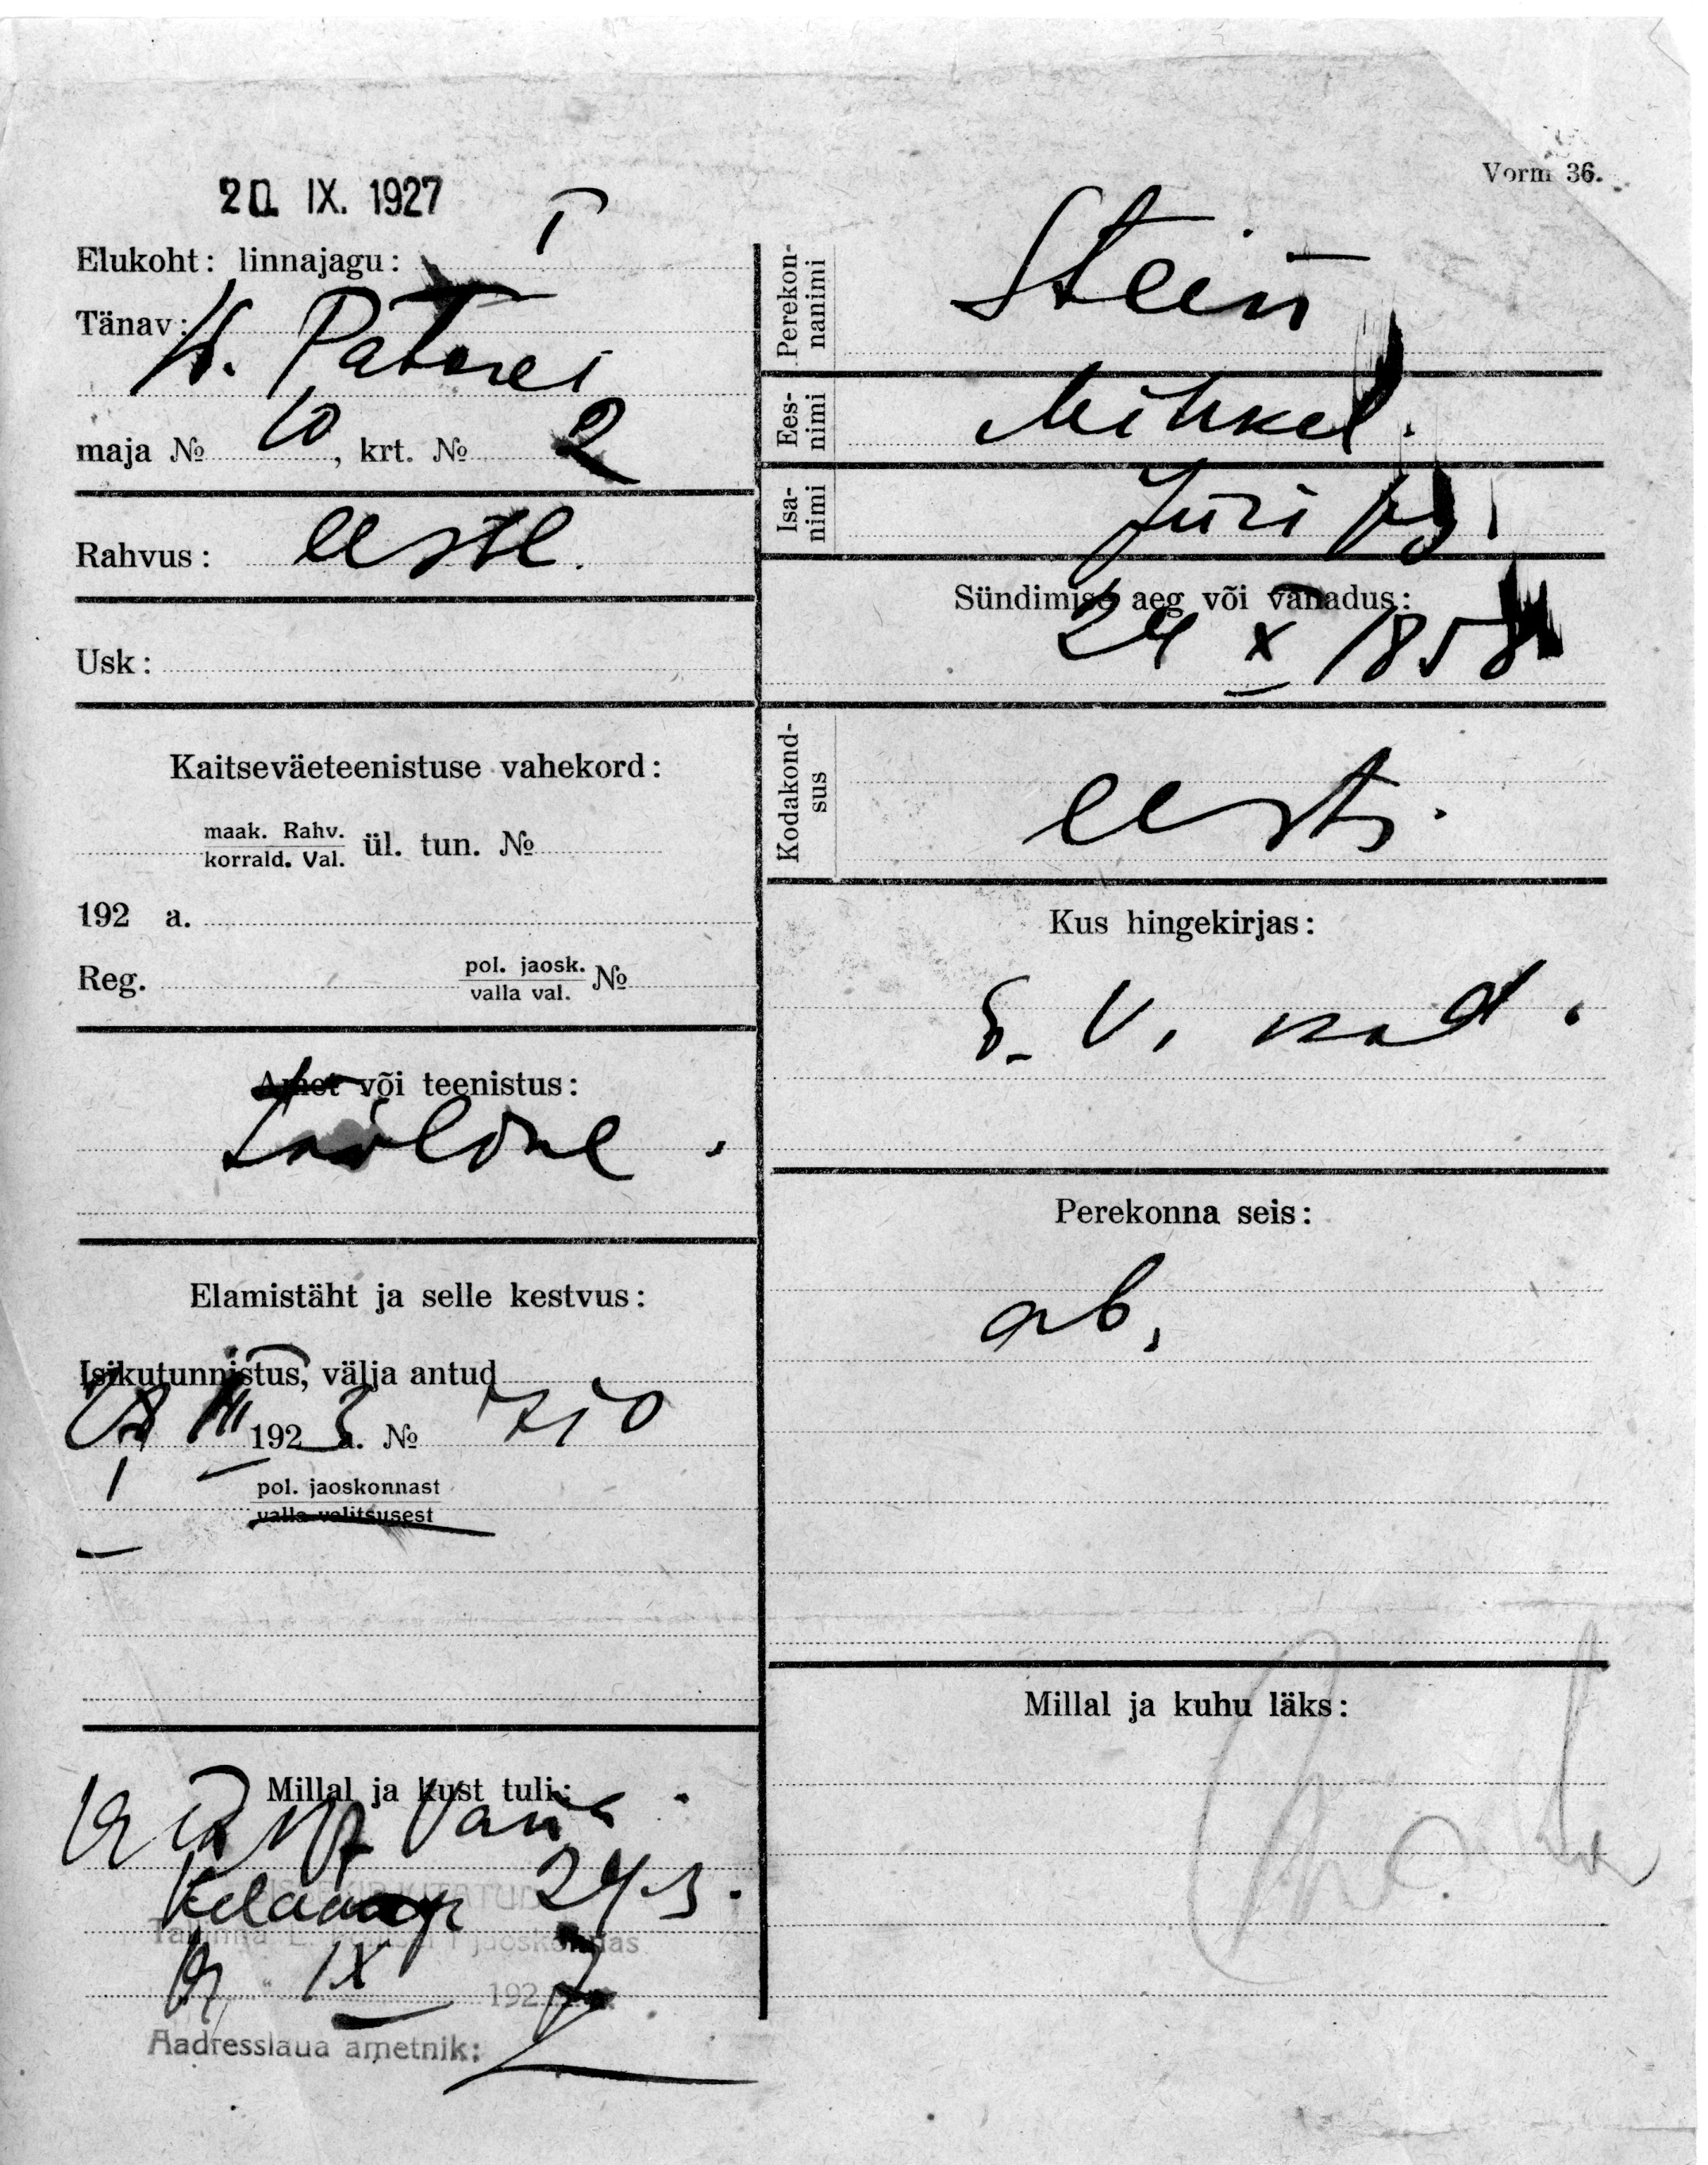 Vorm 36.
20. IX. 1927
Elukoht: linnajagu: I
Tänav:
W. Patarei
maja № 10, krt. № 2
Rahvus: eesti.
Usk:
Kaitseväeteenistuse vahekord:
maak. Rahv.
korrald. Val. ül. tun. №
192 a.
Reg. pol. jaosk.
valla val. №
Amet või teenistus:
tööline.
Elamistäht ja selle kestvus:
Isikutunnistus, välja antud
III 192 3 a. №
I pol. jaoskonnast
valla valitsusest
Millal ja kust tuli:
Vana
24-3.
Tallinna jaoskonnas
19 " IX 192 7
Aadresslaua ametnik:
Perekonnanimi
Stein
Eesnimi
Mihkel.
Isanimi
Jüri pg.
Sündimise aeg või vanadus:
24 X 1858
Kodakondsus
eesti.
Kus hingekirjas:
E. V. kod.
Perekonna seis:
ab.
Millal ja kuhu läks: